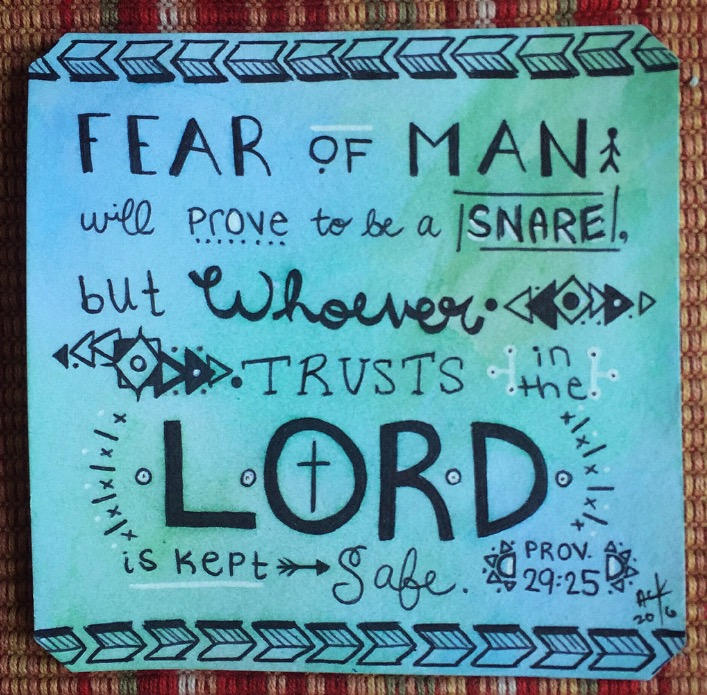 FEAR OF MAN
will prove to be a SNARE,
but Whoever
TRUSTS in the
LORD
is kept Safe.
PROV.
29:25